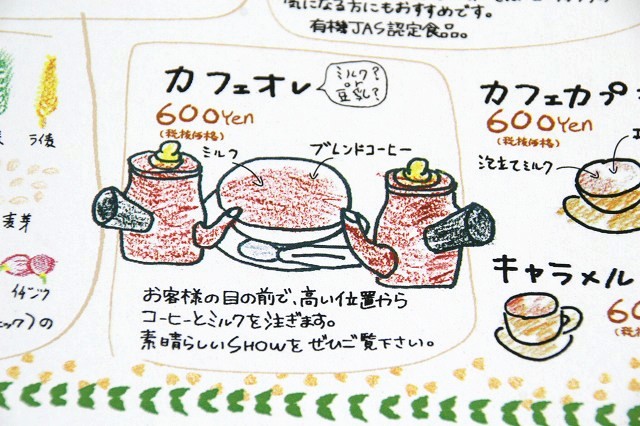 気になる方にもおすすめです。
有機JAS認定食品。
カフェオレ
ミルク?
or
豆乳?
600Yen
(税抜価格)
ミルク
ブレンドコーヒー
お客様の目の前で、高い位置から
コーヒーとミルクを注ぎます。
素晴らしいSHOWをぜひご覧下さい。
カフェカプ
600Yen
(税抜価格)
泡立てミルク
キャラメル
60
ライ麦
麦芽
イチジク
の